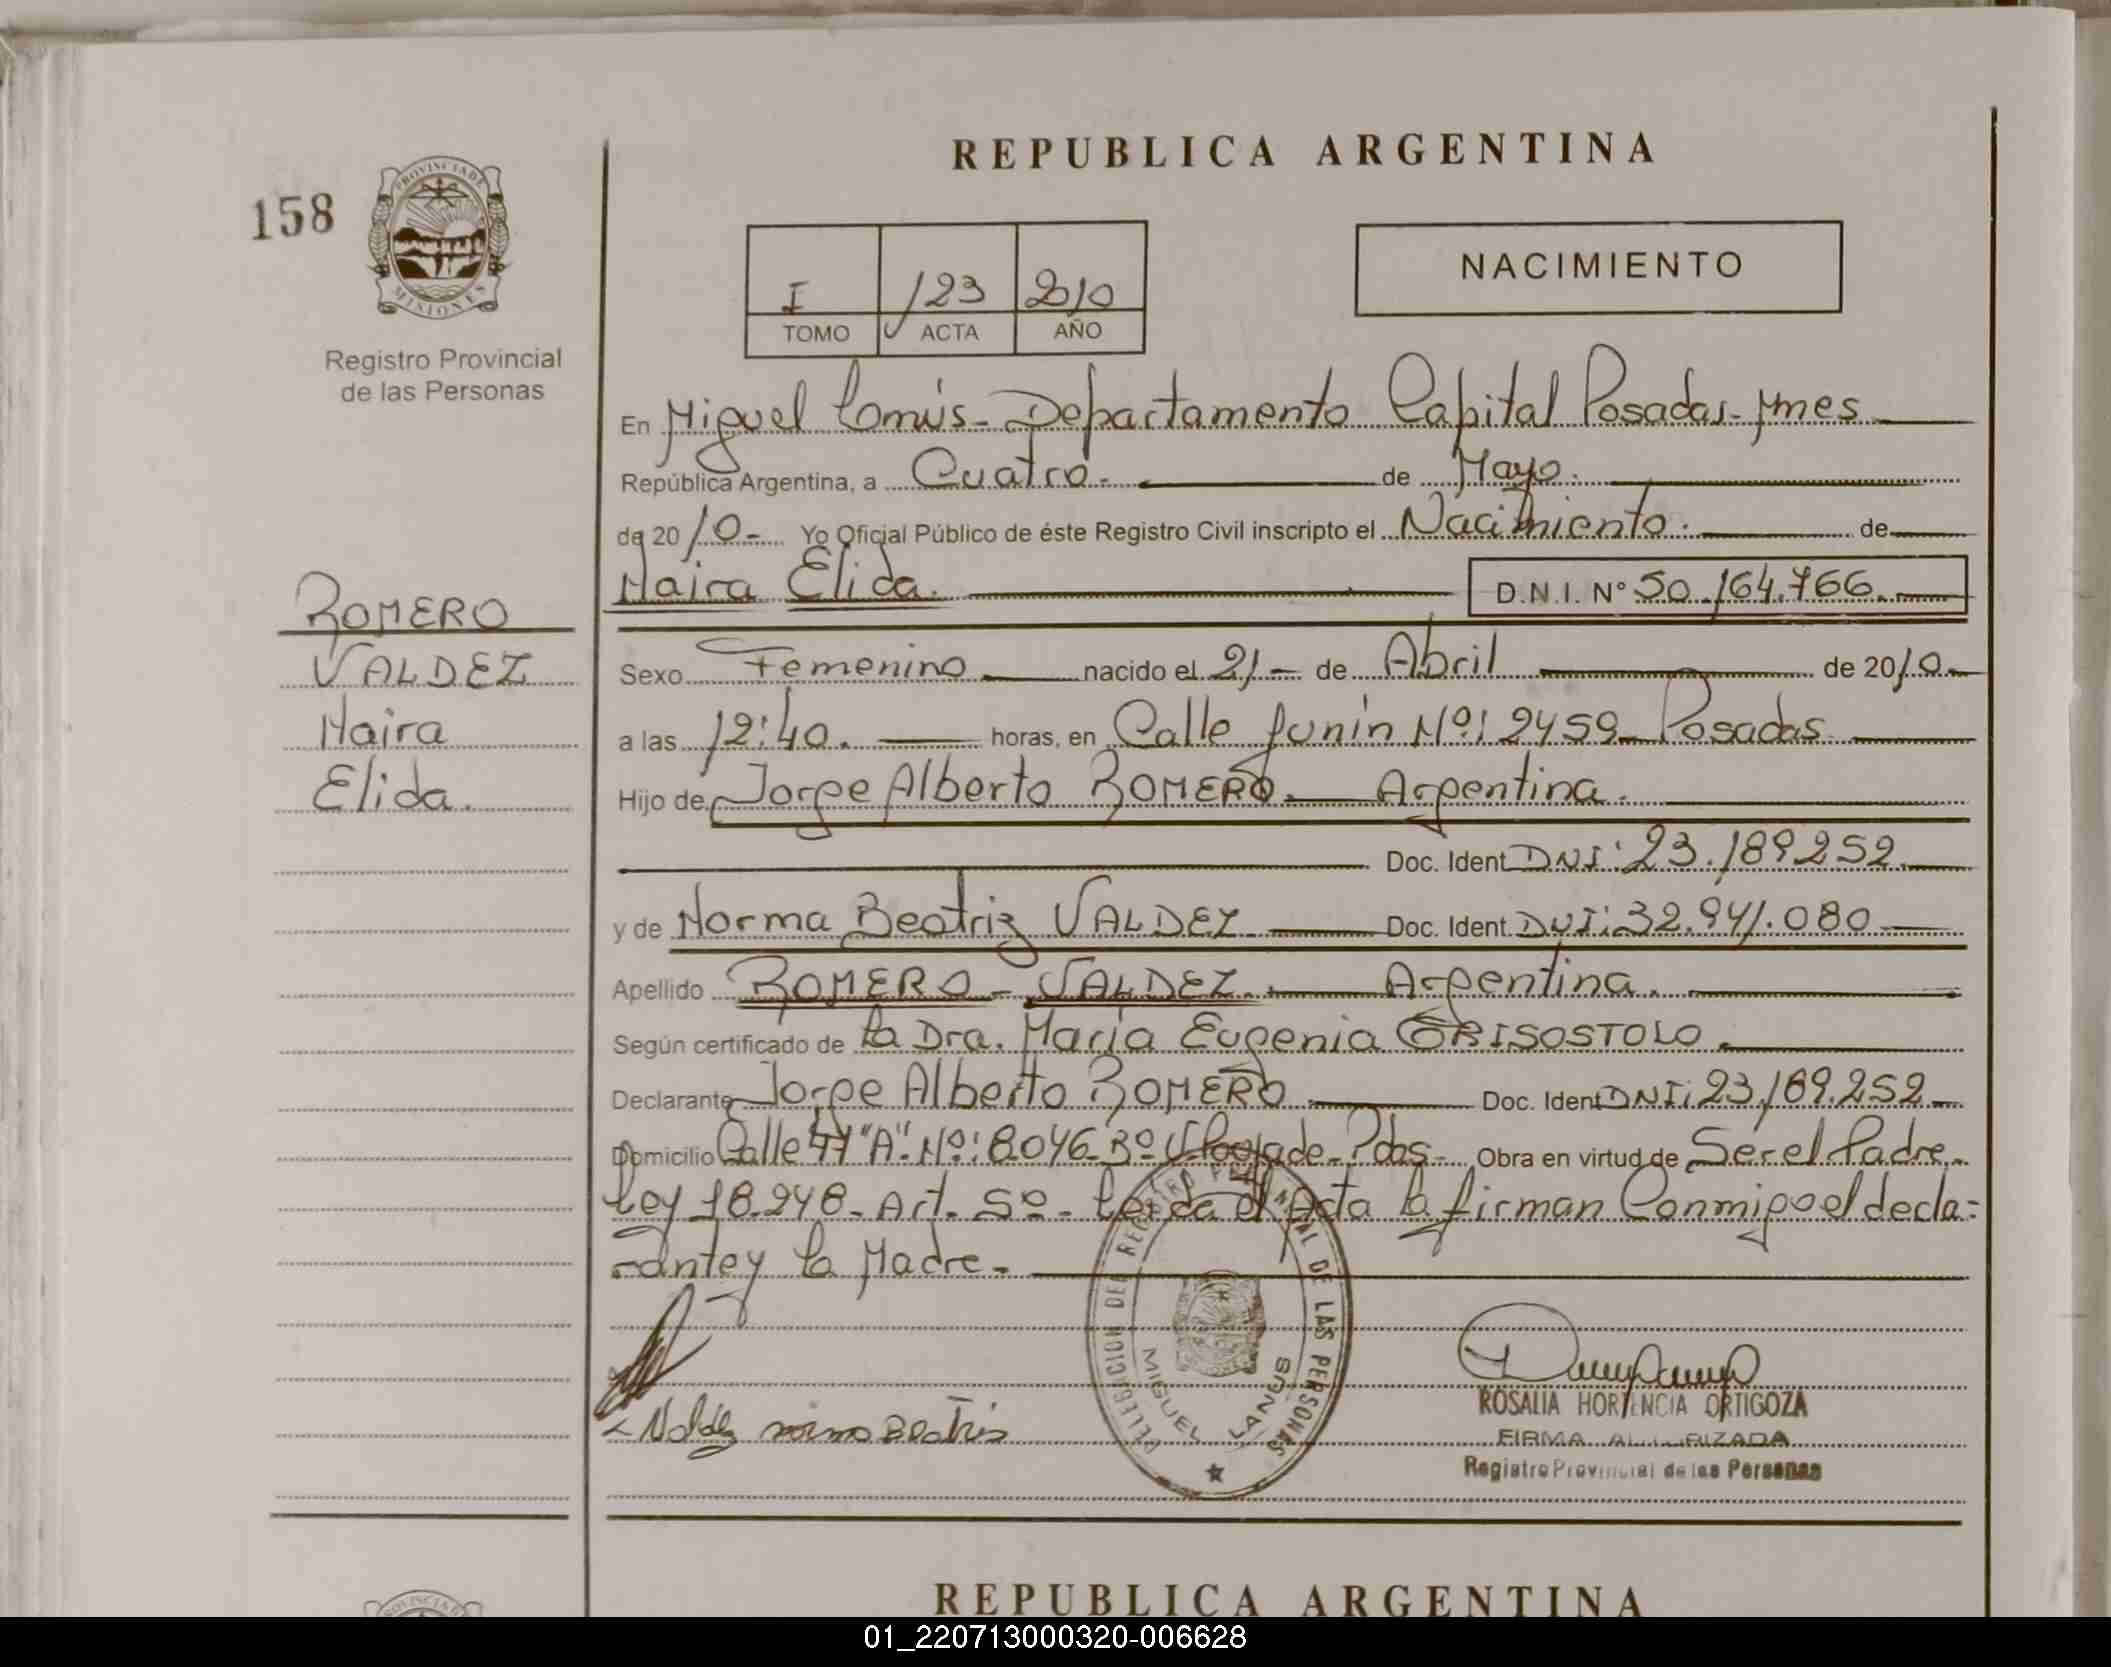 REPUBLICA ARGENTINA
158
PROVINCIA DE
MISIONES
Registro Provincial
de las Personas
I /23 2010
TOMO ACTA AÑO
NACIMIENTO
En Miguel Lanús - Departamento Capital Posadas - Mnes
República Argentina, a Cuatro. de Mayo.
de 2010 - Yo Oficial Público de éste Registro Civil inscripto el Nacimiento. de
Maira Elida. D.N.I. Nº 50.164.766.
ROMERO
VALDEZ
Maira
Elida.
Sexo Femenino nacido el 21 - de Abril de 2010 -
a las 12:40. horas, en Calle Junín Nº: 2459 - Posadas
Hijo de Jorge Alberto ROMERO. Argentina.
Doc. Ident DNI: 23.189.252.
y de Norma Beatriz VALDEZ Doc. Ident. DNI: 32.941.080
Apellido ROMERO - VALDEZ. Argentina.
Según certificado de La Dra. María Eugenia GRISOSTOLO.
Declarante Jorge Alberto ROMERO Doc. Ident DNI: 23.189.252
Domicilio Calle "A". Nº: 8046 - Bº - Pdas - Obra en virtud de Ser el Padre -
Ley 18.248 - Art. 5º - Leida el Acta la firman Conmigo el decla=
rante y la Madre -
DELEGACION DEL REGISTRO PROVINCIAL DE LAS PERSONAS
MIGUEL LANUS
Valdez norma Beatris
ROSALIA HORTENCIA ORTIGOZA
FIRMA AUTORIZADA
Registro Provincial de las Personas
REPUBLICA ARGENTINA
01_220713000320-006628